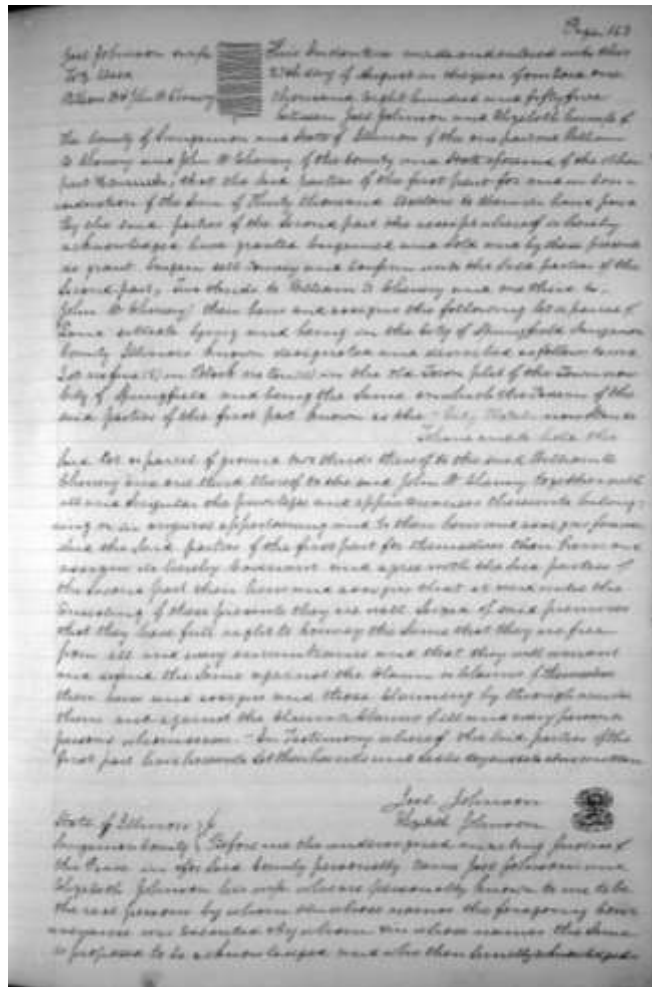 Page 163
Joel Johnson & wife This Indenture made and entered into this
To } Deed 27th day of August in the year of our Lord one
William D & John W Chenery thousand eight hundred and fifty five
between Joel Johnson and Elizabeth his wife of
the County of Sangamon and State of Illinois of the one part and William
D Chenery and John W Chenery of the County and State aforesaid of the other
part Witnesseth, that the said parties of the first part for and in con-
sideration of the sum of Thirty thousand dollars to them in hand paid
by the said parties of the second part the receipt whereof is hereby
acknowledged have granted bargained and sold and by these presents
do grant bargain sell convey and confirm unto the said parties of the
second part, Two thirds to William D Chenery and one third to
John W Chenery their heirs and assigns the following lot or parcel of
Land situate lying and being in the City of Springfield Sangamon
County Illinois known designated and described as follows to wit
Lot in Block in the old Town plat of the Town now
City of Springfield and being the same on which the Tavern of the
said parties of the first part known as the City Hotel now stands
To have and to hold the
said lot or parcel of ground two thirds thereof to the said William D
Chenery and one third thereof to the said John W Chenery together with
all and singular the privileges and appurtenances thereunto belong-
ing or in anywise appertaining and to their heirs and assigns forever
And the said parties of the first part for themselves their heirs and
assigns do hereby covenant and agree with the said parties of
the second part their heirs and assigns that at and until the
ensealing of these presents they are well seized of said premises
that they have full right to convey the same that they are free
from all and every encumbrance and that they will warrant
and defend the same against the claim or claims of themselves
their heirs and assigns and those claiming by through or under
them and against the claim or claims of all and every person or
persons whomsoever. In Testimony whereof the said parties of the
first part have hereunto set their hands and seals
Joel Johnson
Elizabeth Johnson
State of Illinois
Sangamon County Before me the undersigned an acting Justice of
the Peace in & for said County personally came Joel Johnson and
Elizabeth Johnson his wife who are personally known to me to be
the real persons by whom & in whose names the foregoing conv
eyance was executed & by whom & in whose names the same
is proposed to be acknowledged and who then severally acknowledged